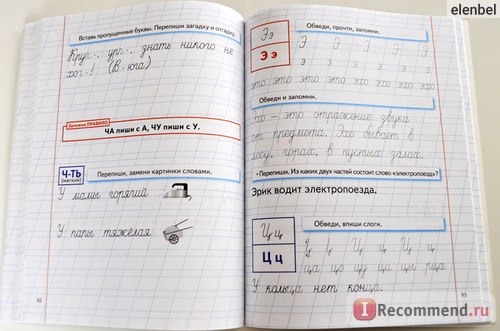 elenbel
Вставь пропущенные буквы. Перепиши загадку и отгадку.
Круч·, урч·, знать никого не
хоч·! (В·юга)
Запомни ПРАВИЛО
ЧА пиши с А, ЧУ пиши с У.
Ч-ТЬ
(мягкий)
Перепиши, замени картинки словами.
У мамы горячий
У папы тяжёлая
92
Обведи, прочти, запомни.
Ээ
Э э
Э Э Э Э Э Э
э э э э э э
это это это это эхо эхо эхо
Обведи и запомни.
Эхо — это отражение звука
от предмета. Эхо бывает в
лесу, горах, в пустых залах.
• Перепиши. Из каких двух частей состоит слово «электропоезд»?
Эрик водит электропоезда.
Цц
Ц ц
Обведи, впиши слоги.
Ц ц Ц ц Ц ц Ц ц
ца цо цу ци цы рца
У кольца нет конца.
93
I Recommend.ru